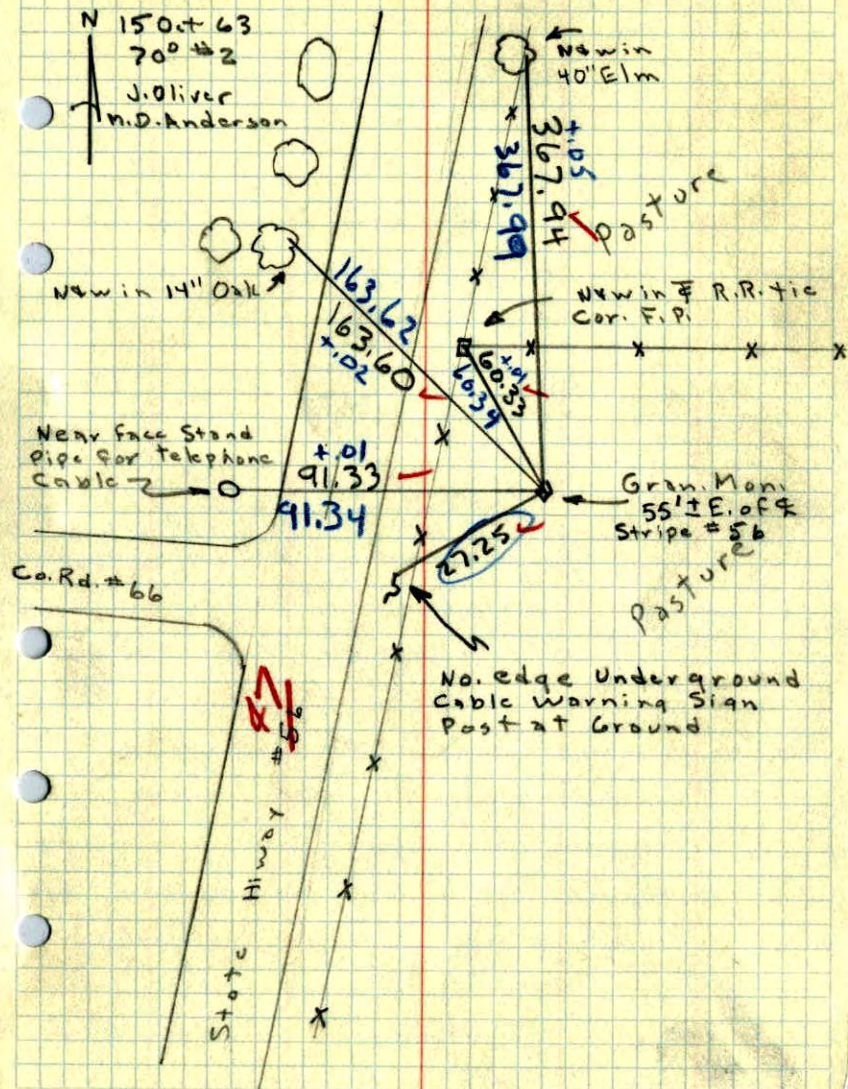 N 15 Oct 63
70° #2
J. Oliver
M. D. Anderson
N&W in
40" Elm
+.05
367.94
367.99
Pasture
N&W in 14" Oak
163.62
163.60
+.02
N&W in R.R. tie
Cor. F.P.
+.01
60.33
60.34
Near Face Stand
Pipe for Telephone
Cable
+.01
91.33
91.34
Gran. Mon.
55' ± E. of ℄
Stripe #56
27.25
Pasture
Co. Rd. #66
No. edge Underground
Cable Warning Sign
Post at Ground
State Hiway #56